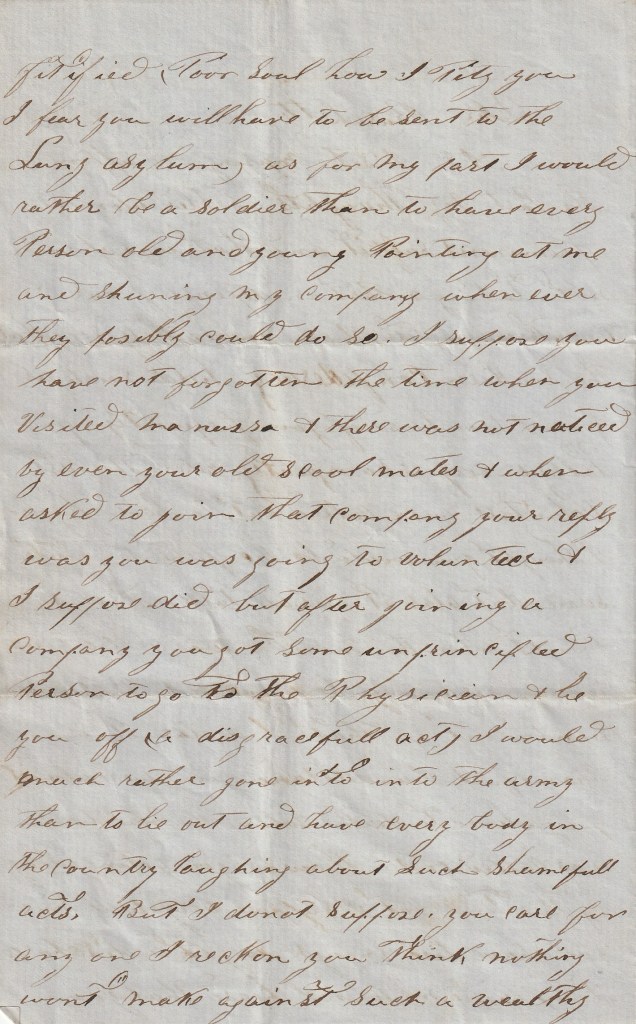 fitified, Poor soul how I Pity you
I fear you will have to be sent to the
Lung asylum, as for my part I would
rather be a soldier than to have every
Person old and young Pointing at me
and shuning my company when ever
they posibly could do so. I suppose you
have not forgotten the time when you
Visited Manassa & there was not noticed
by even your old scool mates & when
asked to join that company your reply
was you was going to volunteer &
I suppose did but after joining a
company you got some unprincipled
Person to go to the Physician & lie
you off (a disgracefull act) I would
much rather gone into into the army
than to lie out and have every body in
the country laughing about such shamefull
acts. But I donot suppose you care for
any one I reckon you think nothing
wont make against such a wealthy